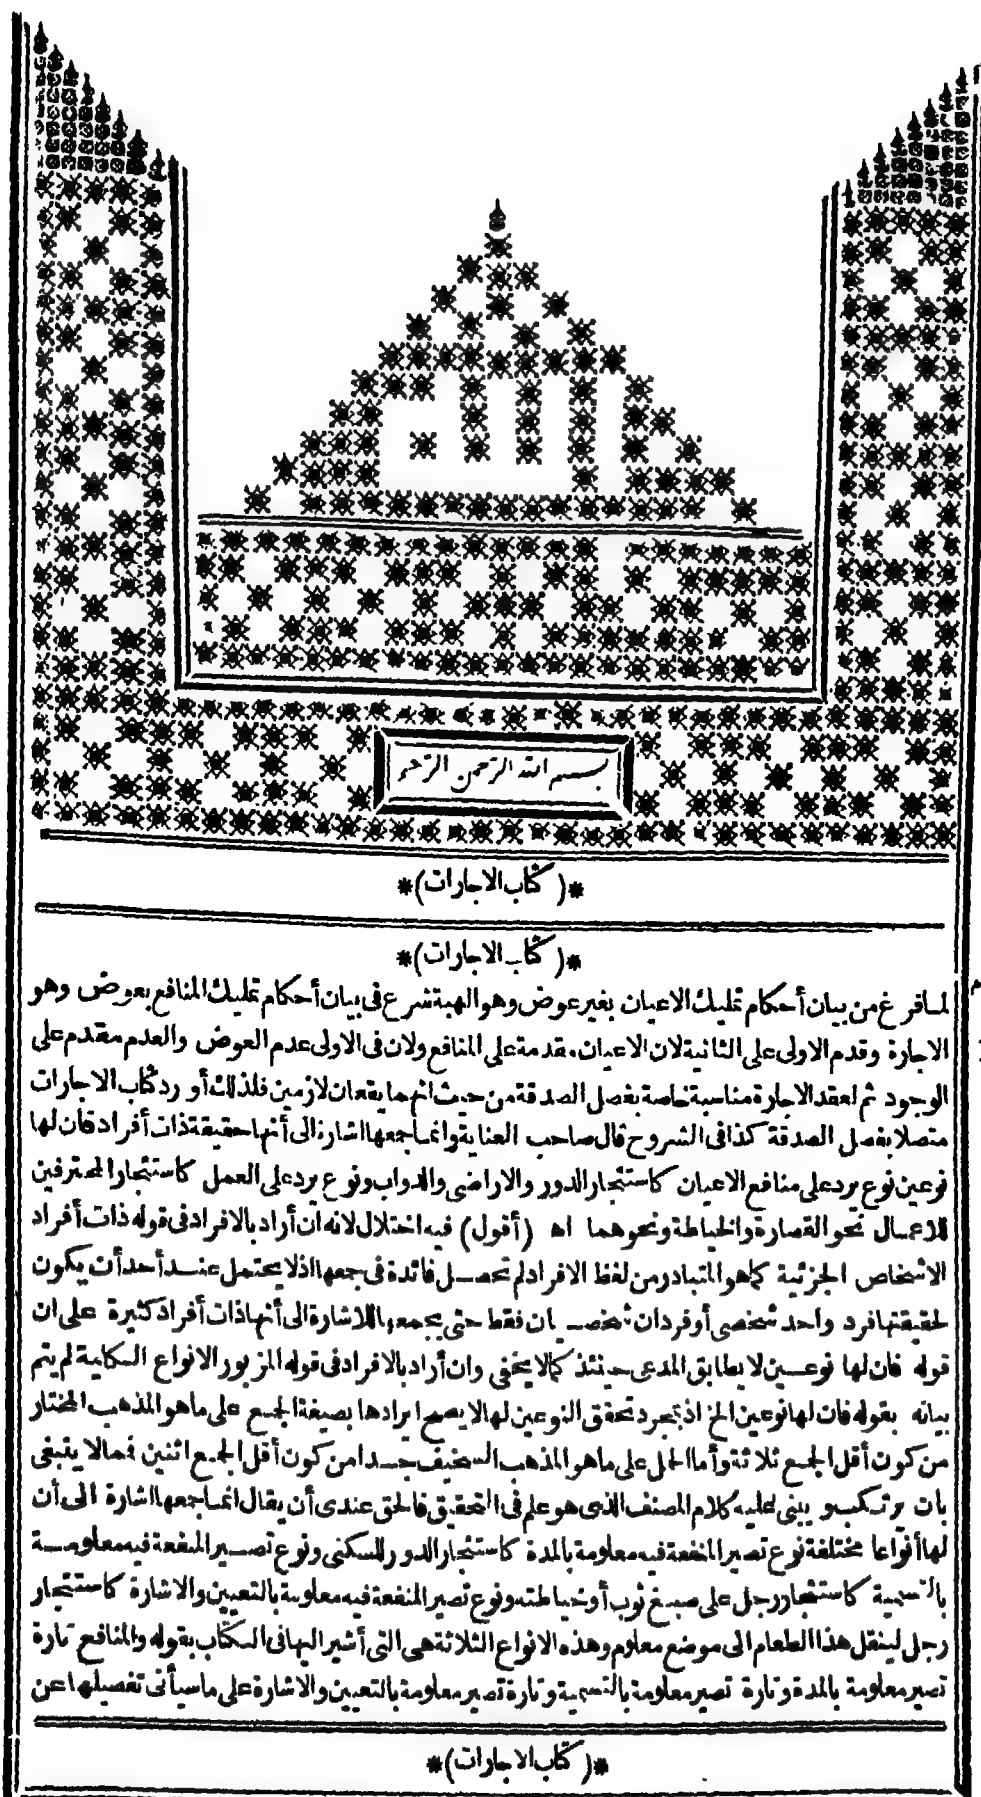 بسم الله الرحمن الرحيم
*( كتاب الاجارات )*
*( كتاب الاجارات )*
لما فرغ من بيان أحكام تمليك الاعيان بغير عوض وهو الهبة شرع في بيان أحكام تمليك المنافع بعوض وهو
الاجارة وقدم الاولى على الثانية لان الاعيان مقدمة على المنافع ولان في الاولى عدم العوض والعدم مقدم على
الوجود ثم لعقد الاجارة مناسبة خاصة بفصل الصدقة من حيث انهما يقعان لازمين فلذلك أورد كتاب الاجارات
متصلا بفصل الصدقة كذا في الشروح قال صاحب العناية وانما جمعها اشارة الى أنها حقيقة ذات أفراد فان لها
نوعين نوع يرد على منافع الاعيان كاستئجار الدور والاراضى والدواب ونوع يرد على العمل كاستئجار المحترفين
للاعمال نحو القصارة والخياطة ونحوهما اه (أقول) فيه اختلال لانه ان أراد بالافراد في قوله ذات أفراد
الاشخاص الجزئية كما هو المتبادر من لفظ الافراد لم تحصل فائدة في جمعها اذ لا يحتمل عند أحد أن يكون
لحقيقتها فرد واحد شخصى أو فردان شخصيان فقط حتى يجمعها للاشارة الى أنها ذات أفراد كثيرة على ان
قوله فان لها نوعين لا يطابق المدعى حينئذ كما لا يخفى وان أراد بالافراد في قوله المزبور الانواع الكلية لم يتم
بيانه بقوله فان لها نوعين الخ اذ بمجرد تحقق النوعين لها لا يصح ايرادها بصيغة الجمع على ما هو المذهب المختار
من كون أقل الجمع ثلاثة وأما الحمل على ما هو المذهب السخيف جدا من كون أقل الجمع اثنين فمما لا ينبغى
بان يرتكب و يبنى عليه كلام المصنف الذى هو علم في التحقيق فالحق عندى أن يقال انما جمعها اشارة الى أن
لها أنواعا مختلفة نوع تصير المنفعة فيه معلومة بالمدة كاستئجار الدور للسكنى ونوع تصير المنفعة فيه معلومة
بالتسمية كاستئجار رجل على صبغ ثوب أو خياطته ونوع تصير المنفعة فيه معلومة بالتعيين والاشارة كاستئجار
رجل لينقل هذا الطعام الى موضع معلوم وهذه الانواع الثلاثة هى التى أشير اليها في الكتاب بقوله والمنافع تارة
تصير معلومة بالمدة وتارة تصير معلومة بالتسمية وتارة تصير معلومة بالتعيين والاشارة على ما سيأتى تفصيلها عن
*( كتاب الاجارات )*